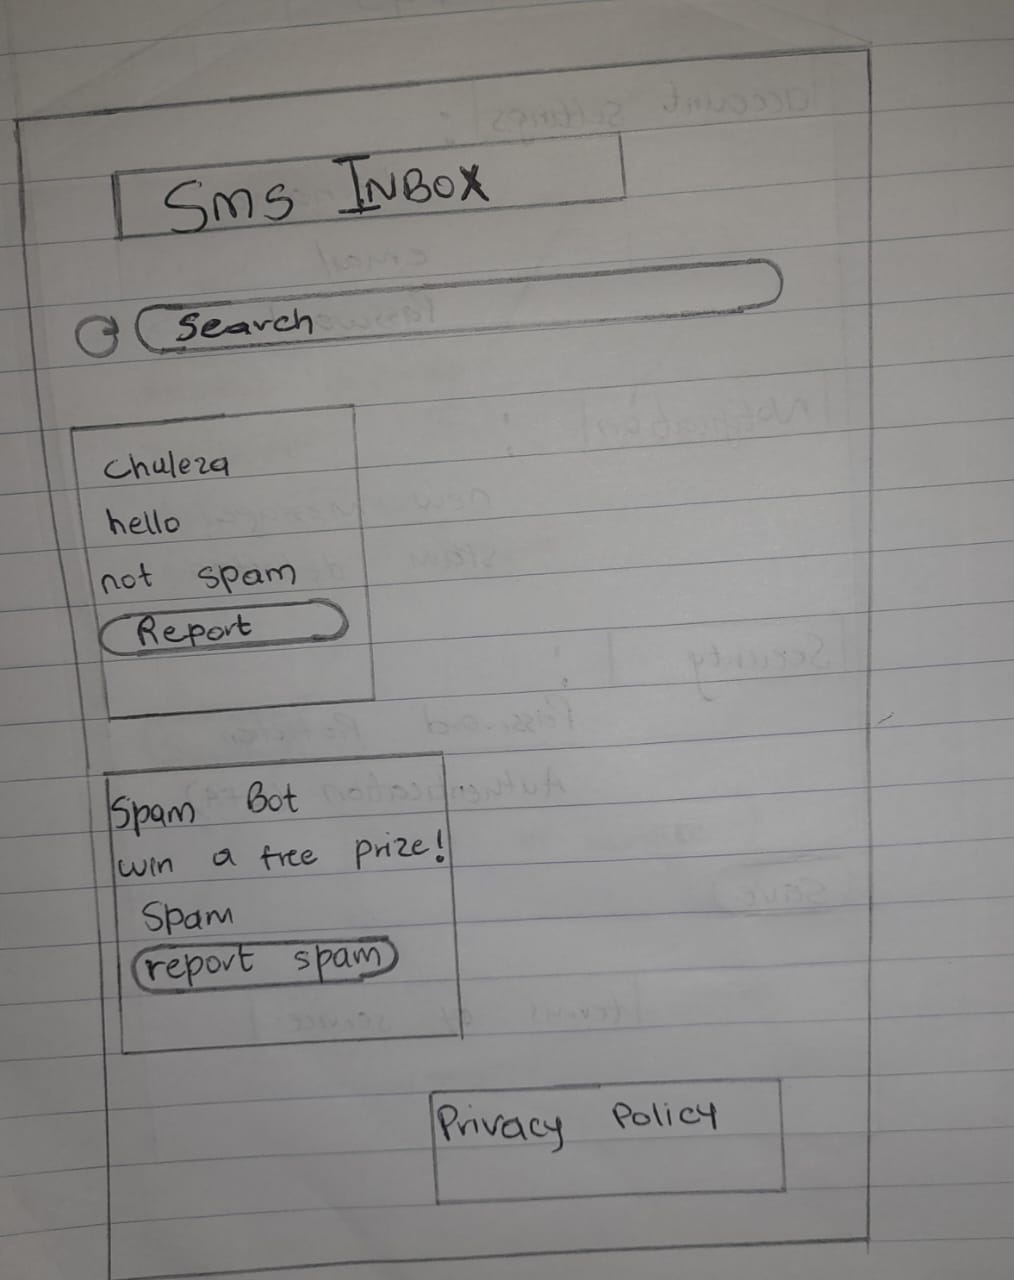 Sms INBOX
Search
Chuleza
hello
not spam
Report
Spam Bot
win a free prize!
Spam
report spam
Privacy Policy